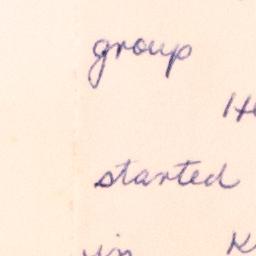 group
started
in